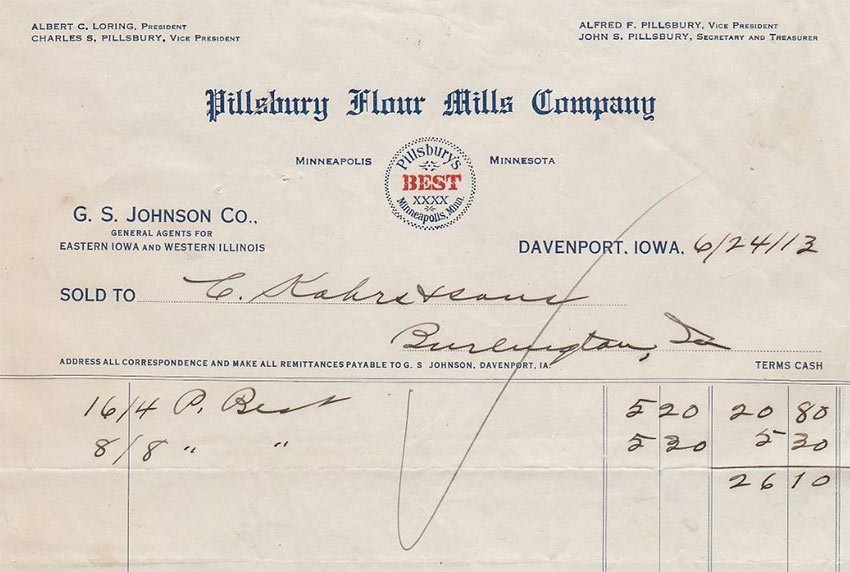 ALBERT C. LORING, PRESIDENT
CHARLES S. PILLSBURY, VICE PRESIDENT
ALFRED F. PILLSBURY, VICE PRESIDENT
JOHN S. PILLSBURY, SECRETARY AND TREASURER
Pillsbury Flour Mills Company
MINNEAPOLIS MINNESOTA
Pillsbury's
BEST
XXXX
Minneapolis, Minn.
G. S. JOHNSON CO.,
GENERAL AGENTS FOR
EASTERN IOWA AND WESTERN ILLINOIS
DAVENPORT, IOWA, 6/24/13
SOLD TO C. Kahrs & sons
Burlington, Ia
ADDRESS ALL CORRESPONDENCE AND MAKE ALL REMITTANCES PAYABLE TO G. S JOHNSON, DAVENPORT, IA. TERMS CASH
16/4 P. Best 5 20 20 80
8/8 " " 5 30 5 30
26 10